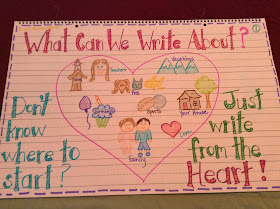 What Can We Write About?
Vacations
Teachers
Pets
Sports
Your House
Love
Family
Don't
know
where to
start?
Just
write
from the
Heart!